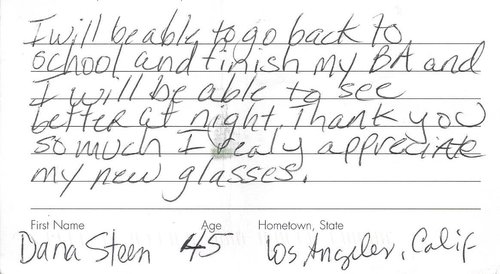 I will be able to go back to
school and finish my BA and
I will be able to see
better at night. Thank you
so much I realy appreciate
my new glasses.
First Name Age Hometown, State
Dana Steen 45 Los Angeles, Calif